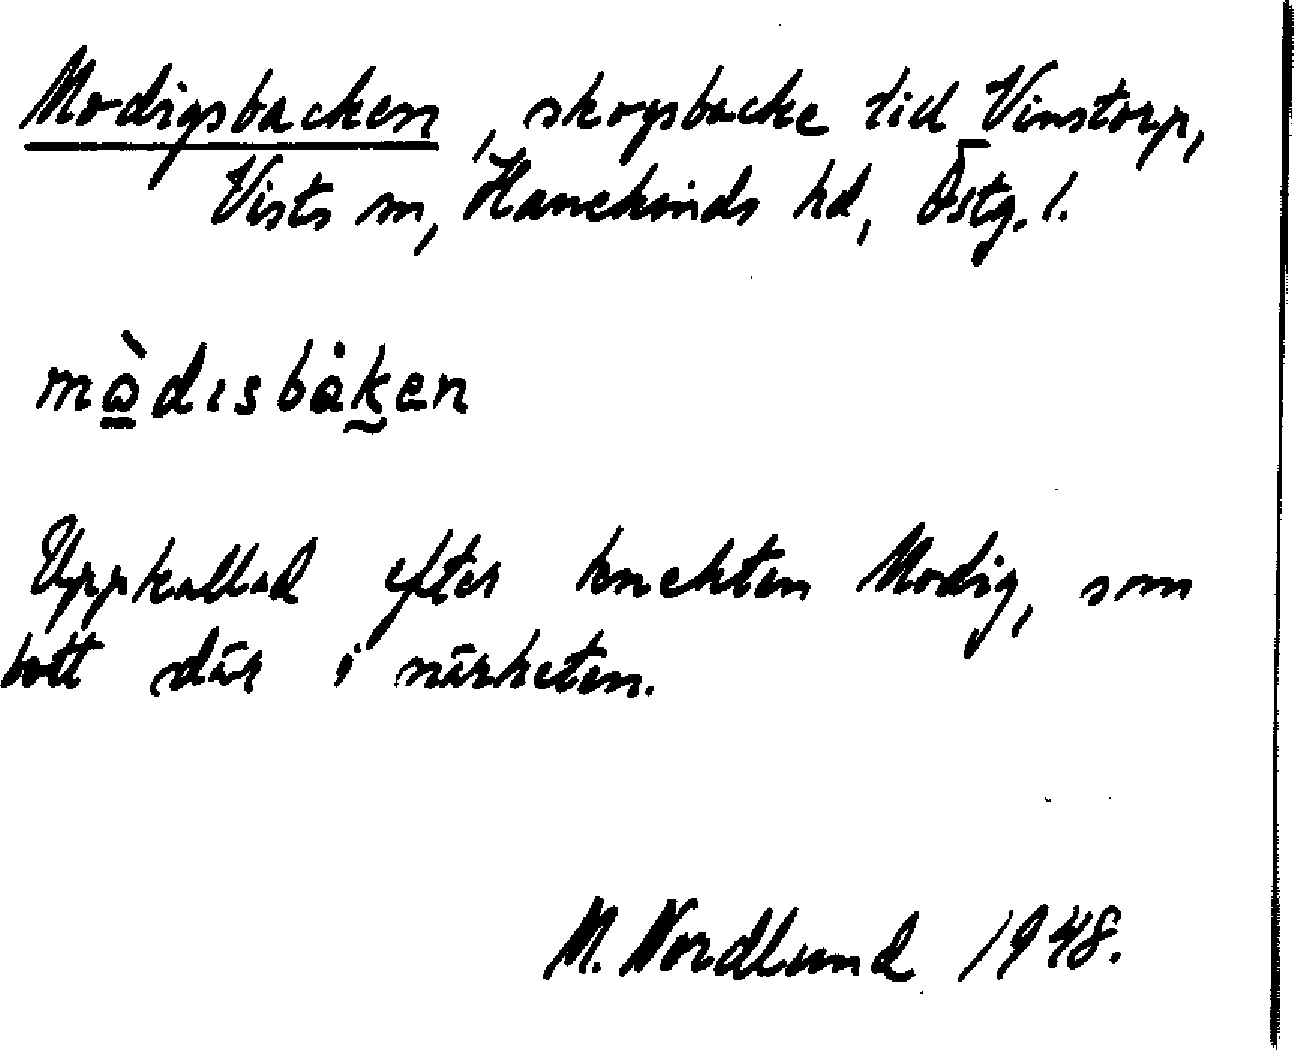 Modigsbacken, skogsbacke till Vinstorp,
Vists sn, Hanekinds hd, Östg. l.
mò̱disbȧk̰en
Uppkallad efter knekten Modig, som
bott där i närheten.
M. Nordlund 1948.